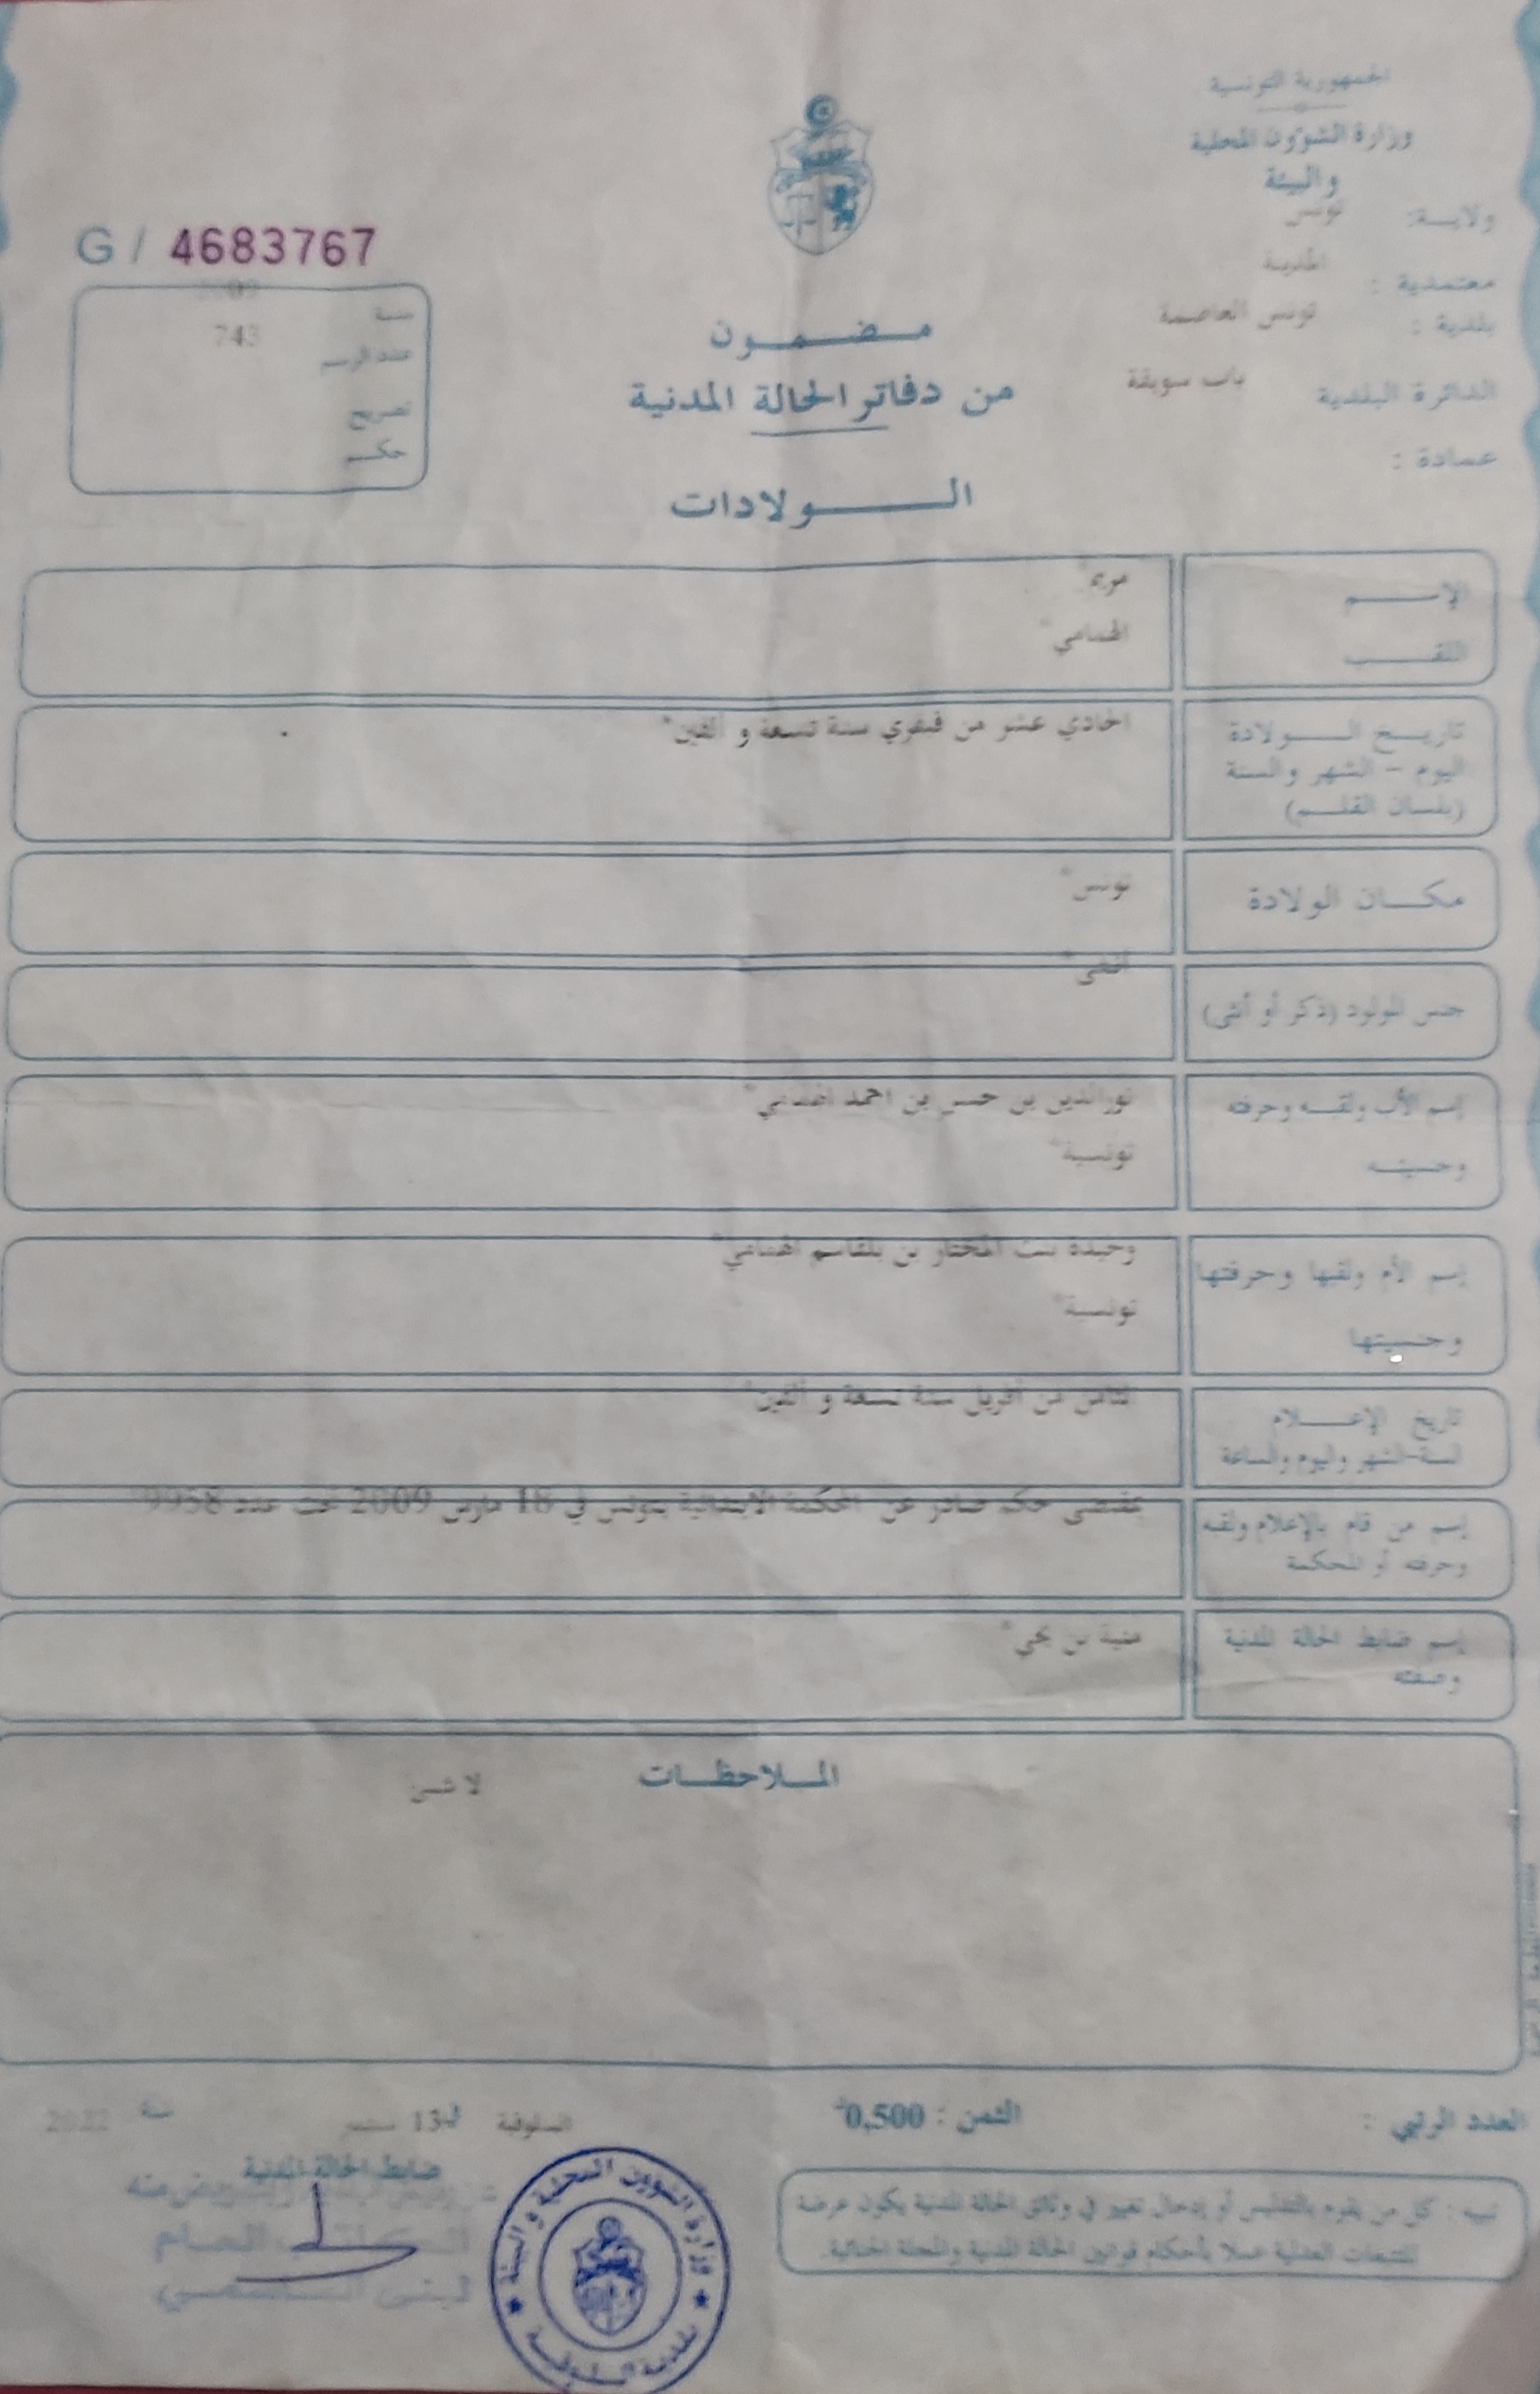 الجمهورية التونسية
وزارة الشؤون المحلية
والبيئة
ولايــة: تونس
معتمدية : المدينة
بلدية : تونس العاصمة
الدائرة البلدية باب سويقة
عمادة :
G / 4683767
سنة 2009
عدد الرسم 743
تصريح
حكم
مضمون
من دفاتر الحالة المدنية
الولادات
الإسم مريم*
اللقب الهمامي*
تاريخ الولادة الحادي عشر من فيفري سنة تسعة و ألفين*
اليوم - الشهر والسنة
(بلسان القلم)
مكان الولادة تونس*
جنس المولود (ذكر أو أنثى) أنثى*
إسم الأب ولقبه وحرفته نورالدين بن حسن بن احمد الهمامي*
وجنسيته تونسية*
إسم الأم ولقبها وحرفتها وحيدة بنت المختار بن بلقاسم الهمامي*
وجنسيتها تونسية*
تاريخ الإعلام الثامن من أفريل سنة تسعة و ألفين*
لسنة-الشهر واليوم والساعة
إسم من قام بالإعلام ولقبه بمقتضى حكم صادر عن المحكمة الابتدائية بتونس في 18 مارس 2009 تحت عدد 9958*
وحرفته أو المحكمة
إسم ضابط الحالة المدنية منية بن يحي*
وصفته
الملاحظات
لا شئ
العدد الرتبي :
الثمن : 0,500د
السلوقية في 13 سبتمبر سنة 2022
ضابط الحالة المدنية
تنبيه : كل من يقوم بالتدليس أو إدخال تغيير في وثائق الحالة المدنية يكون عرضة
للتتبعات العدلية عملا بأحكام قوانين الحالة المدنية والمجلة الجنائية.
الكاتب العام
وزارة الشؤون المحلية و البيئة
بلدية السلوقية